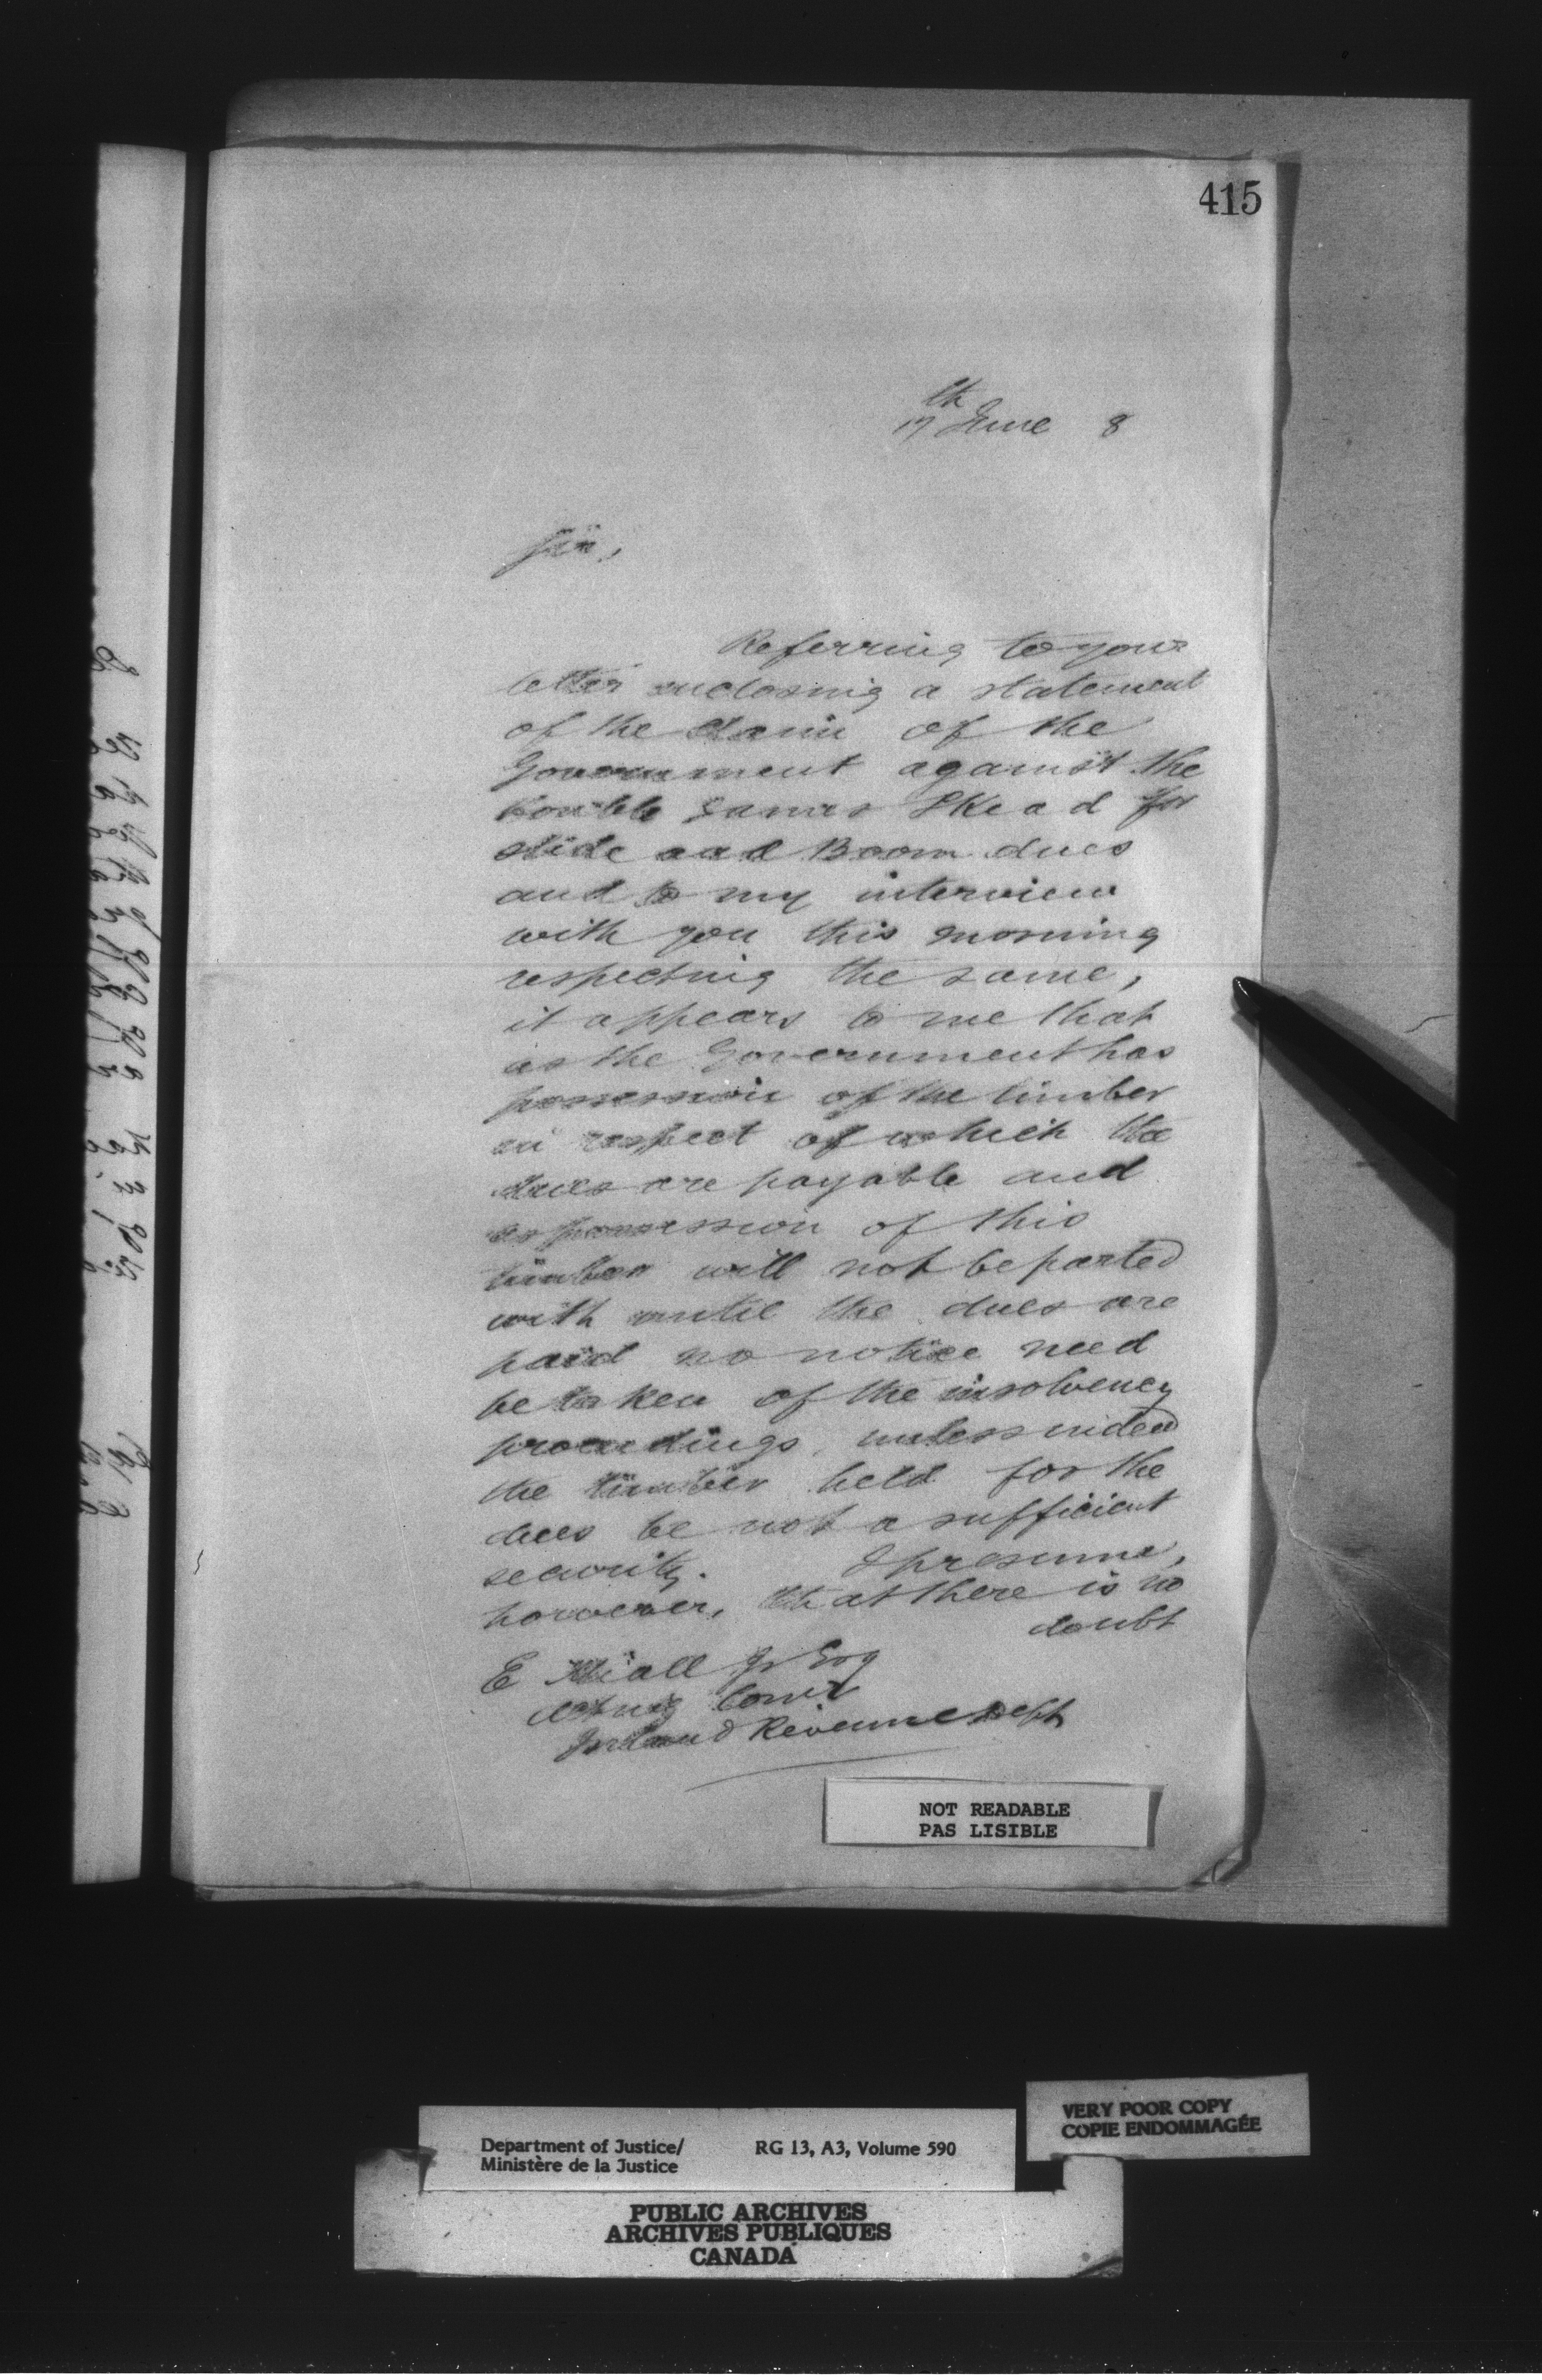 415
17th June 8
Sir,
Referring to your
letter enclosing a statement
of the claim of the
Government against the
Honble James Skead for
slide and Boom dues
and to my interview
with you this morning
respecting the same,
it appears to me that
as the Government has
possession of the timber
in respect of which the
dues are payable and
as possession of this
timber will not be parted
with until the dues are
paid no notice need
be taken of the insolvency
proceedings, unless indeed
the timber held for the
dues be not a sufficient
security. I presume,
however, that there is no
doubt
E Miall Jr Esq
Acting Comr
Inland Revenue Dept
NOT READABLE
PAS LISIBLE
VERY POOR COPY
COPIE ENDOMMAGÉE
Department of Justice/ RG 13, A3, Volume 590
Ministère de la Justice
PUBLIC ARCHIVES
ARCHIVES PUBLIQUES
CANADA